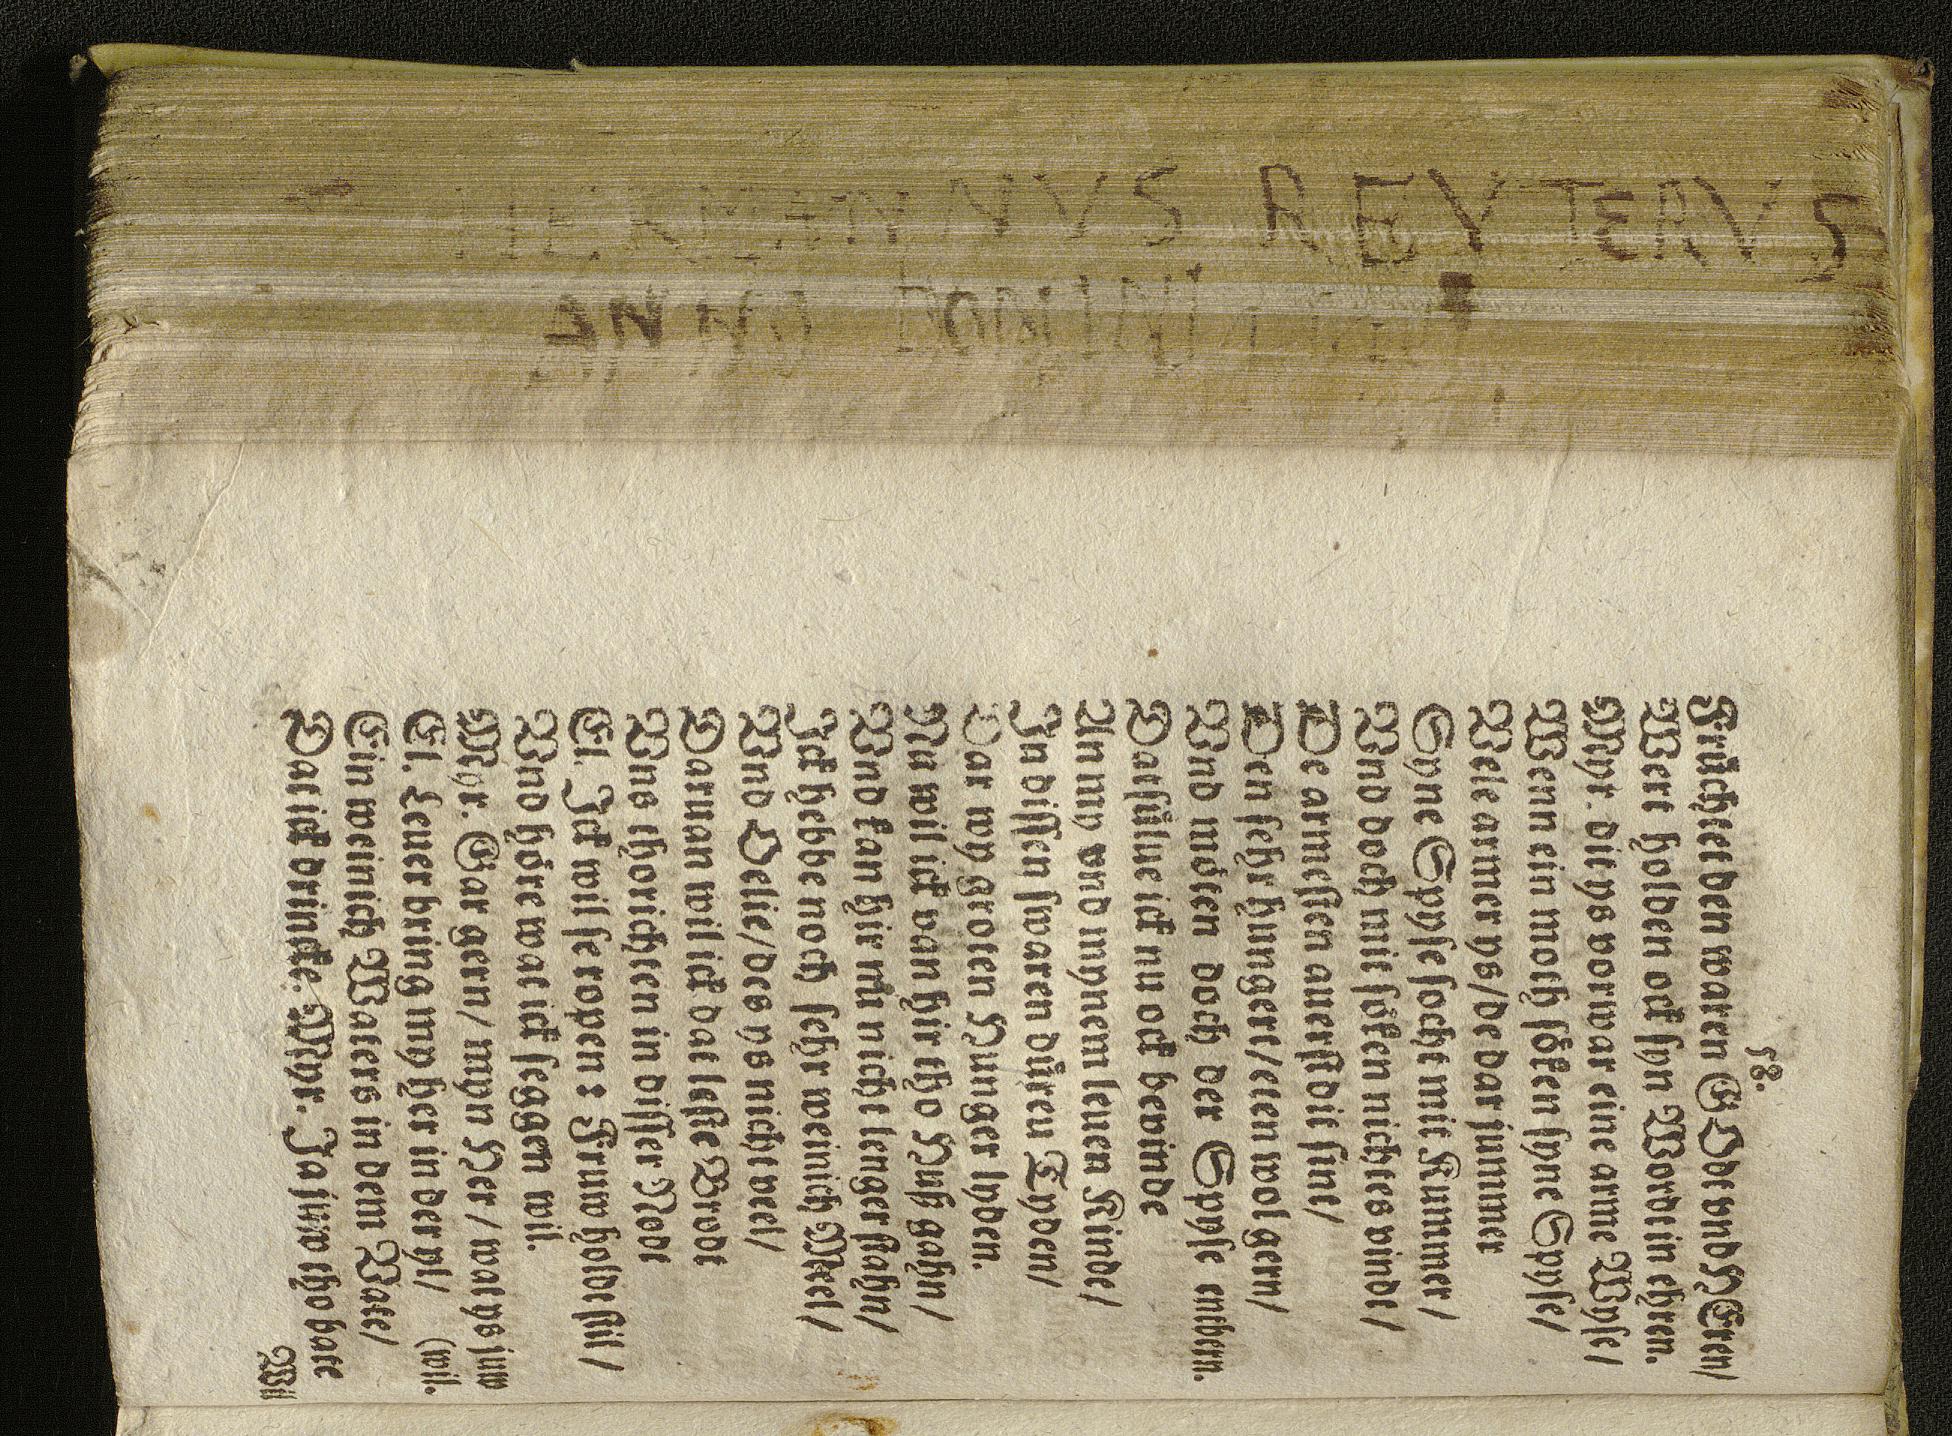 HERMANNVS REYTERVS
ANNO DOMINI
58.
Früchtet den waren GOdt vnd HEren/
Wert holden ock syn Wordt in ehren.
Myr. dit ys vorwar eine arme Wyse/
Wenn ein moth söken syne Spyse/
Vele armer ys/ de dar jummer
Syne Spyse socht mit Kummer/
Vnd doch mit söken nichtes vindt/
De armesten auerst dit sint/
Den sehr hungert/ eten wol gern/
Vnd möten doch der Spyse entbern.
Datsülue ick nu ock bevinde
An my vnd mynem leuen Kinde/
In dissen swaren düren Tyden/
Dar wy groten Hunger lyden.
Nu wil ick van hir tho Huß gahn/
Vnd kan hir nu nicht lenger stahn/
Ick hebbe noch sehr weinich Meel/
Vnd Oelie/ des ys nicht veel/
Daruan wil ick dat leste Brodt
Vns thorichten in disser Nodt
El. Ick wil se ropen: Fruw holdt still/
Vnd höre wat ick seggen wil.
Myr. Gar gern/ myn Her/ wat ys juw
El. Leuer bring my her in der yl/ (wil.
Ein weinich Waters in dem Vate/
Dat ick drincke. Myr. Ja juw tho bate
Wil